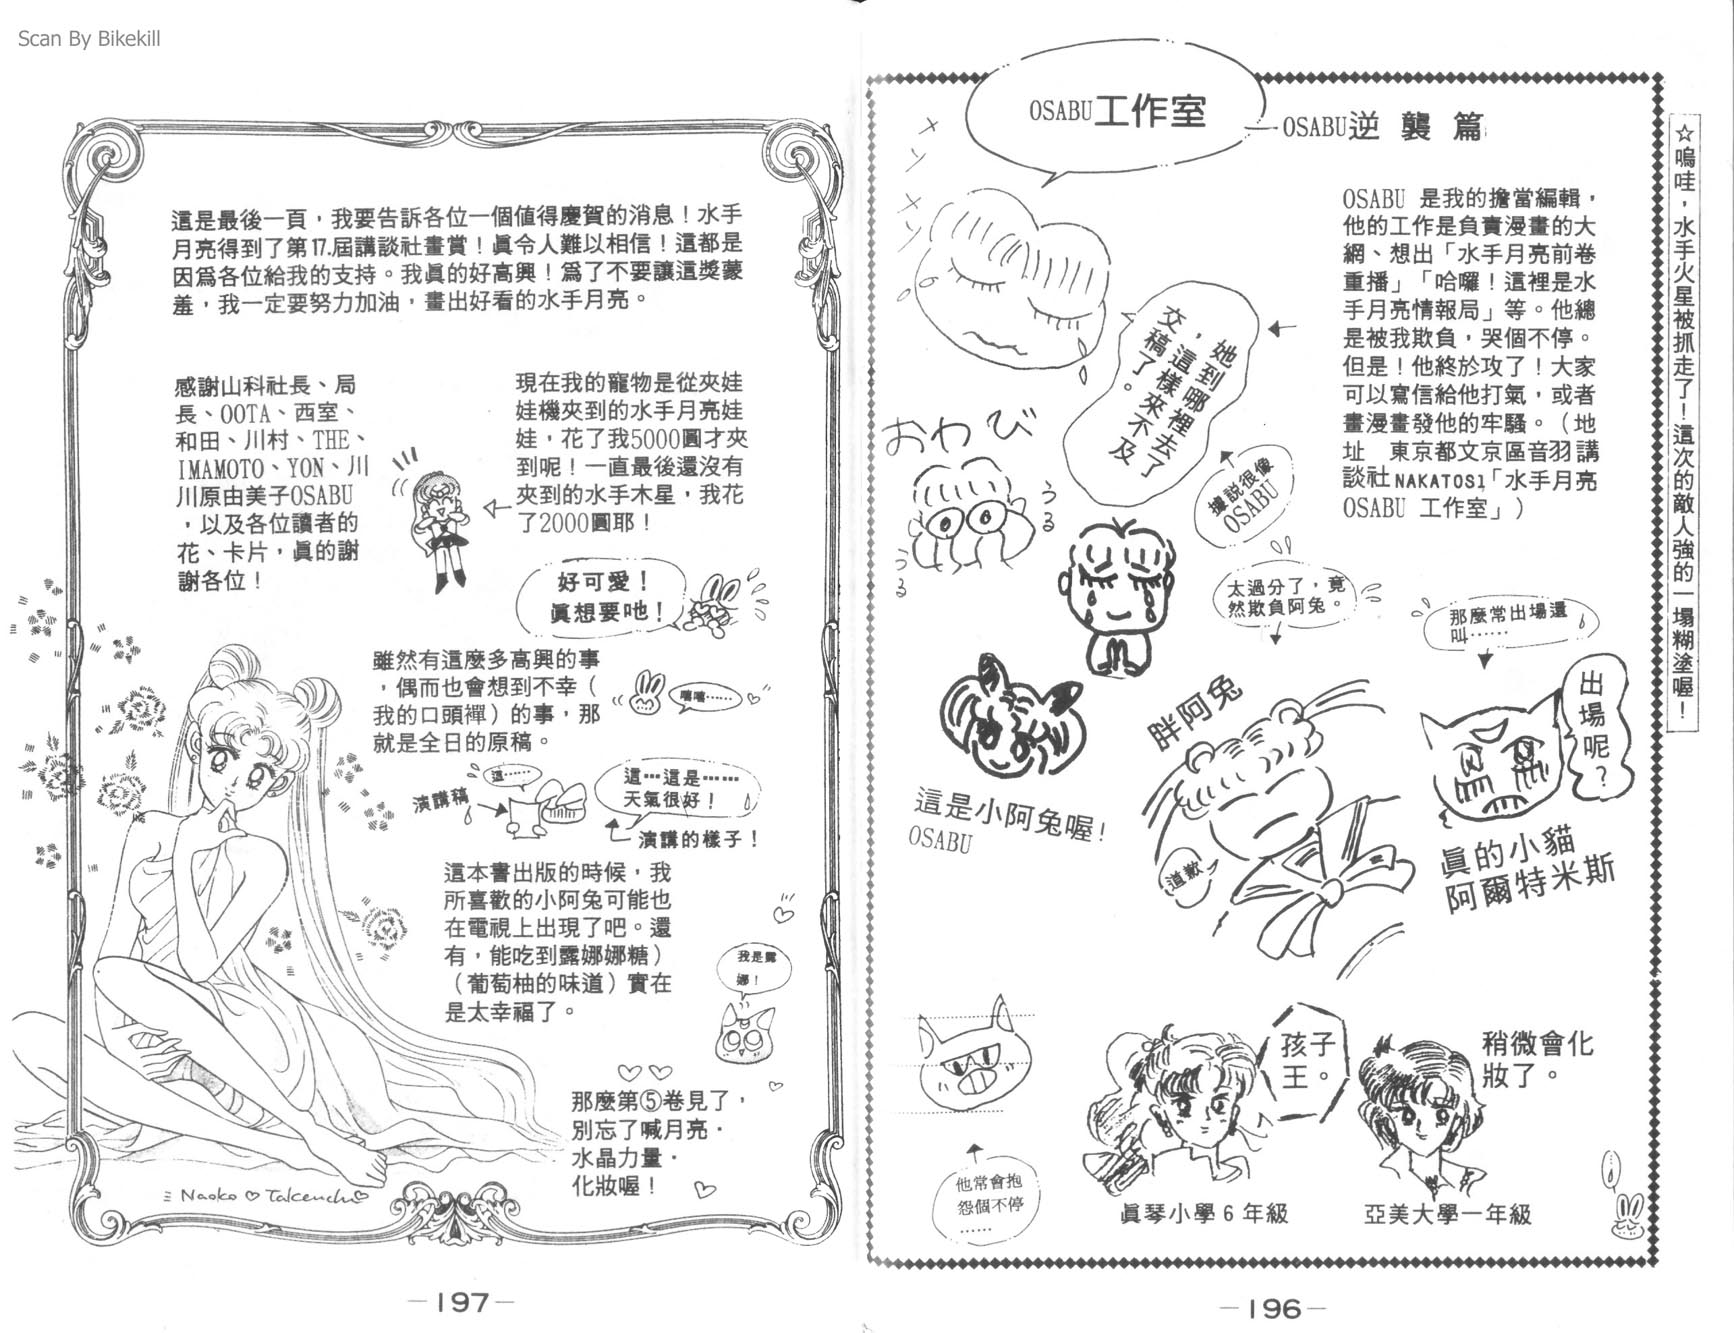 Scan By Bikekill
☆嗚哇，水手火星被抓走了！這次的敵人強的一塌糊塗喔！
OSABU工作室
OSABU逆襲篇
OSABU 是我的擔當編輯，
他的工作是負責漫畫的大
網、想出「水手月亮前卷
重播」「哈囉！這裡是水
手月亮情報局」等。他總
是被我欺負，哭個不停。
但是！他終於攻了！大家
可以寫信給他打氣，或者
畫漫畫發他的牢騷。（地
址　東京都文京區音羽講
談社NAKATOSI「水手月亮
OSABU 工作室」）
メソメソ
她到哪裡去了
，這樣來不及
交稿了。
據說很像
OSABU
おわび
うる
うる
太過分了，竟
然欺負阿兔。
那麼常出場還
叫……
出場呢？
這是小阿兔喔！
OSABU
胖阿兔
道歉
眞的小貓
阿爾特米斯
他常會抱
怨個不停
……
孩子
王。
眞琴小學6年級
稍微會化
妝了。
亞美大學一年級
—196—
這是最後一頁，我要告訴各位一個值得慶賀的消息！水手
月亮得到了第17.屆講談社畫賞！眞令人難以相信！這都是
因爲各位給我的支持。我眞的好高興！爲了不要讓這獎蒙
羞，我一定要努力加油，畫出好看的水手月亮。
現在我的寵物是從夾娃
娃機夾到的水手月亮娃
娃，花了我5000圓才夾
到呢！一直最後還沒有
夾到的水手木星，我花
了2000圓耶！
感謝山科社長、局
長、OOTA、西室、
和田、川村、THE、
IMAMOTO、YON、川
川原由美子OSABU
，以及各位讀者的
花、卡片，眞的謝
謝各位！
好可愛！
眞想要吔！
雖然有這麼多高興的事
，偶而也會想到不幸（
我的口頭禪）的事，那
就是全日的原稿。
嘻嘻……
這……
演講稿
這…這是……
天氣很好！
演講的樣子！
這本書出版的時候，我
所喜歡的小阿兔可能也
在電視上出現了吧。還
有，能吃到露娜娜糖）
（葡萄柚的味道）實在
是太幸福了。
我是露
娜！
那麼第⑤卷見了，
別忘了喊月亮．
水晶力量．
化妝喔！
Naoko♡Takeuchi♡
—197—